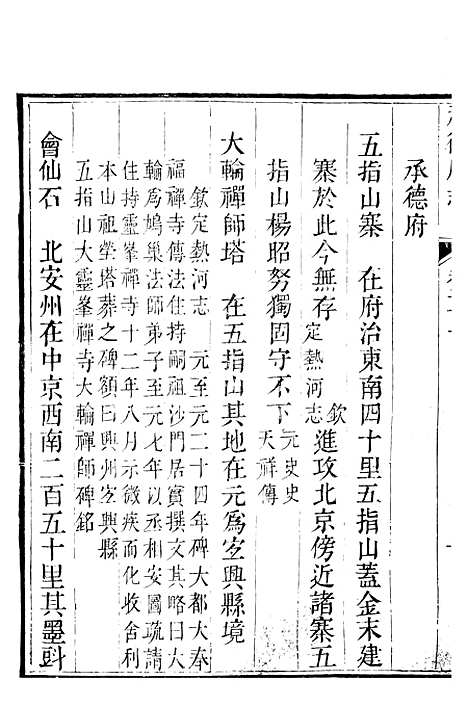 承德府
五指山寨　在府治東南四十里五指山蓋金末建
寨於此今無存欽定熱河志進攻北京傍近諸寨五
指山楊昭努獨固守不下元史史天祥傳
大輪禪師塔　在五指山其地在元爲宐興縣境
欽定熱河志　元至元二十四年碑大都大奉
福禪寺傳法住持嗣祖沙門居實撰文其略曰大
輪爲鳩巢法師弟子至元七年以丞相安圖疏請
住持靈峯禪寺十二年八月示微疾而化收舍利
本山祖塋塔葬之碑額曰興州宐興縣
五指山大靈峯禪寺大輪禪師碑銘
會仙石　北安州在中京西南二百五十里其墨斗